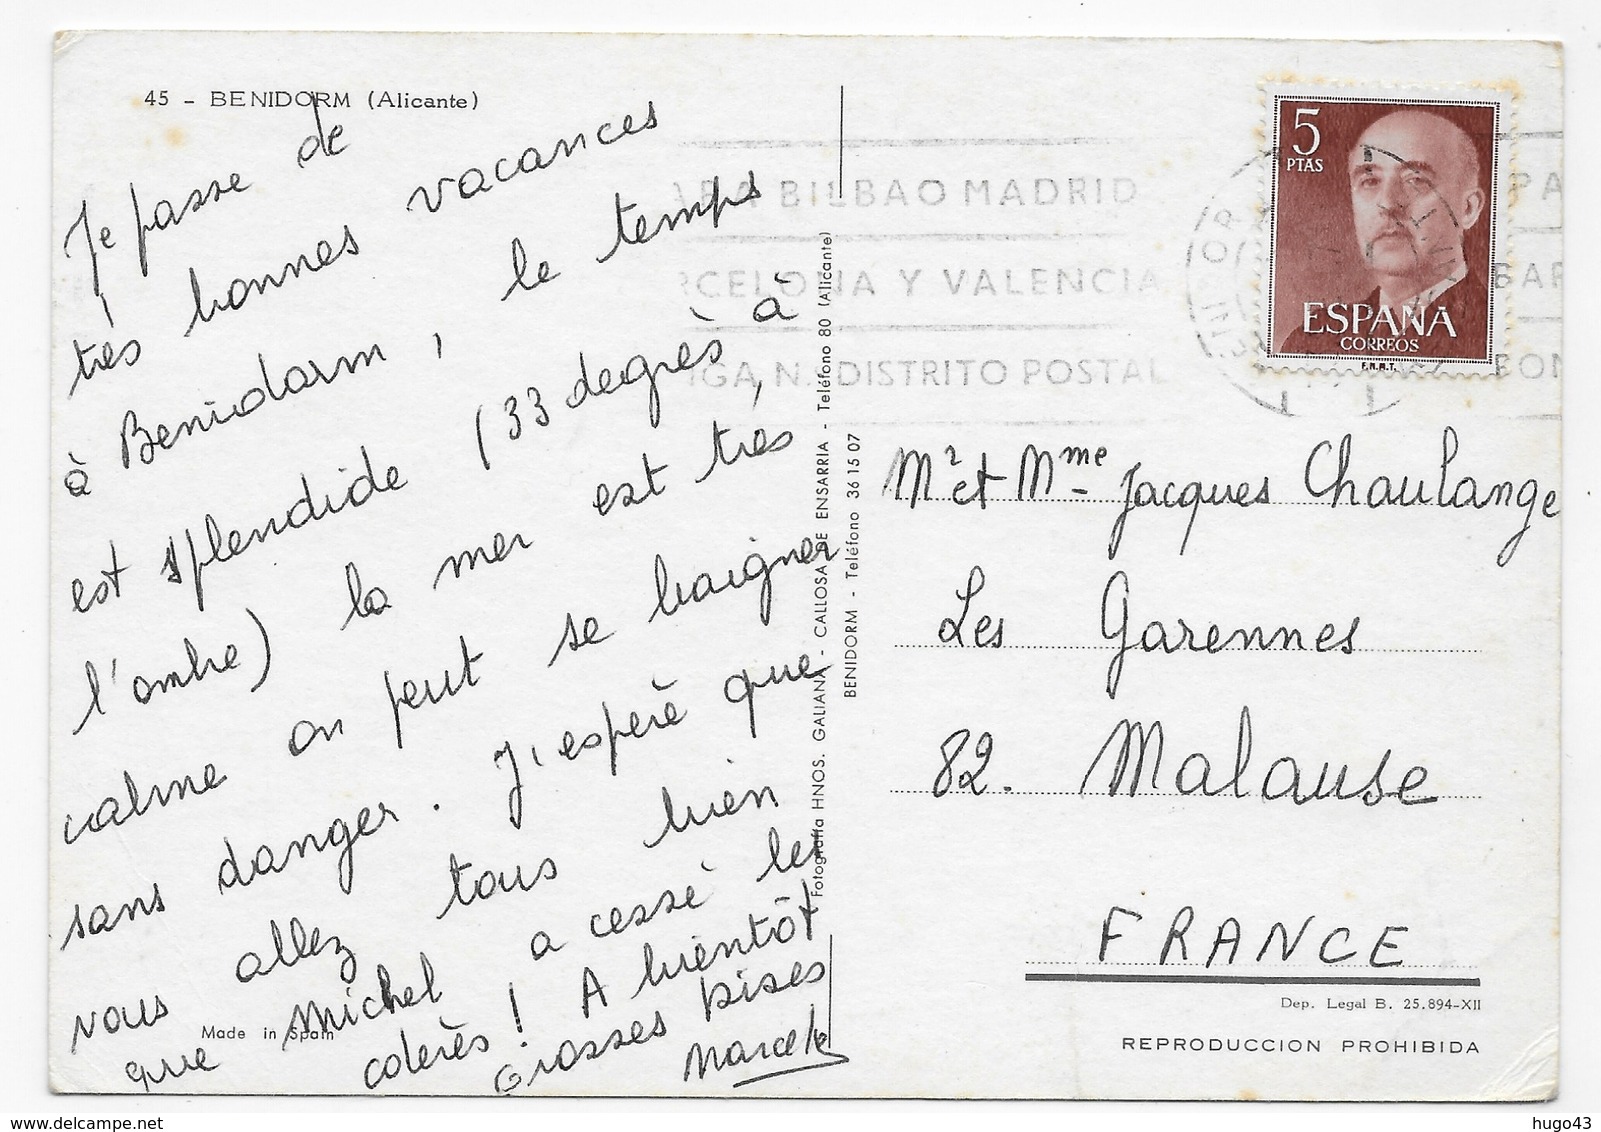 45 - BENIDORM (Alicante)
Je passe de
très bonnes vacances
à Benidorm, le temps
est splendide (33 degrès à
l'ombre) la mer est très
calme, on peut se baigner
sans danger. J'espère que
vous allez tous bien
que Michel a cessé les
colerès ! A bientôt
Grosses bises
Marcelle
Made in Spain
Fotografía HNOS. GALIANA - CALLOSA DE ENSARRIA - Teléfono 80 (Alicante)
BENIDORM - Teléfono 36 15 07
PARA BILBAO MADRID
RCELONA Y VALENCIA
IGA N. DISTRITO POSTAL
5
PTAS
ESPAÑA
CORREOS
F.N.M.T.
PA
BAR
PON
Mr et Mme Jacques Chaulange
Les Garennes
82. Malause
FRANCE
Dep. Legal B. 25.894-XII
REPRODUCCION PROHIBIDA
delcampe.net
hugo43